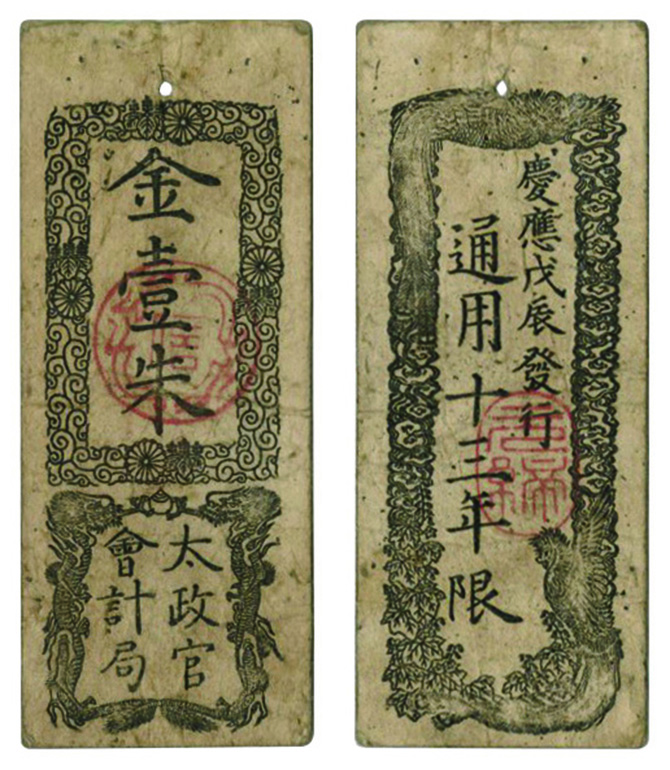 金壹朱
太政官
會計局
慶應戊辰發行
通用十三年限